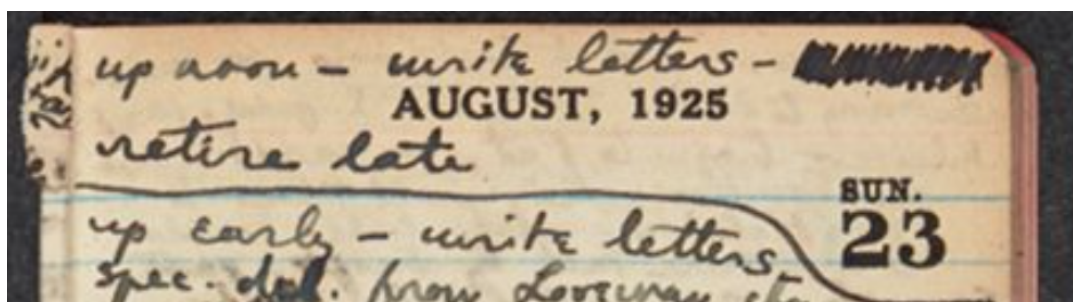 up noon – write letters –
AUGUST, 1925
retire late
SUN.
23
up early – write letters.
spec. del. from Loveman etc